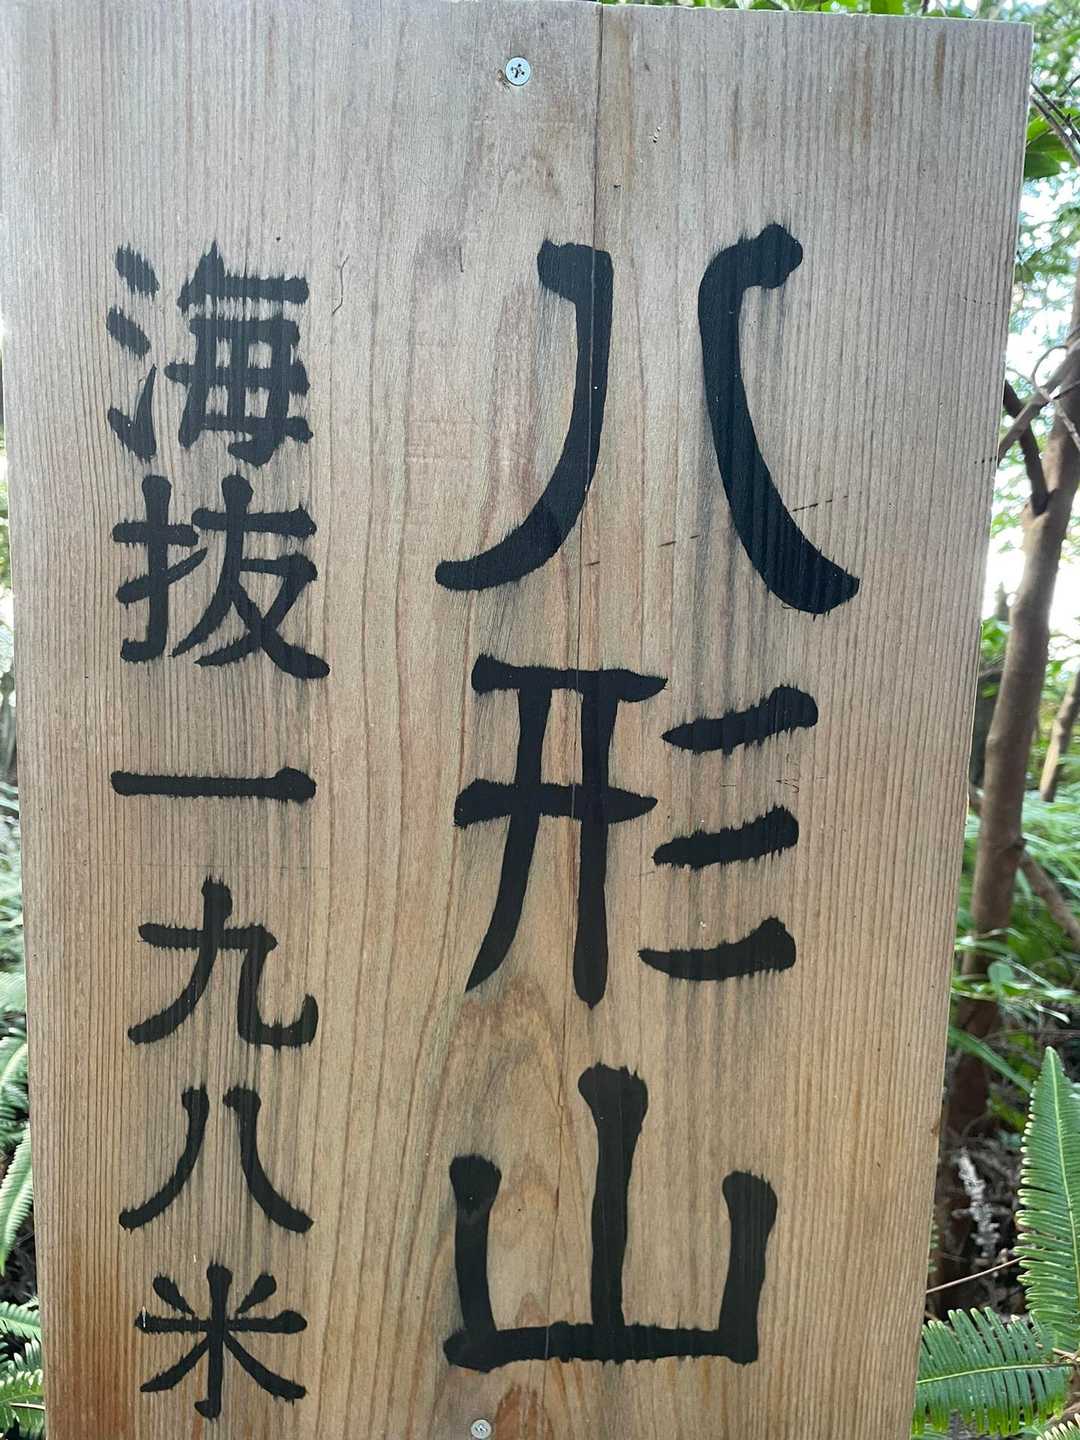 八形山
海抜一九八米